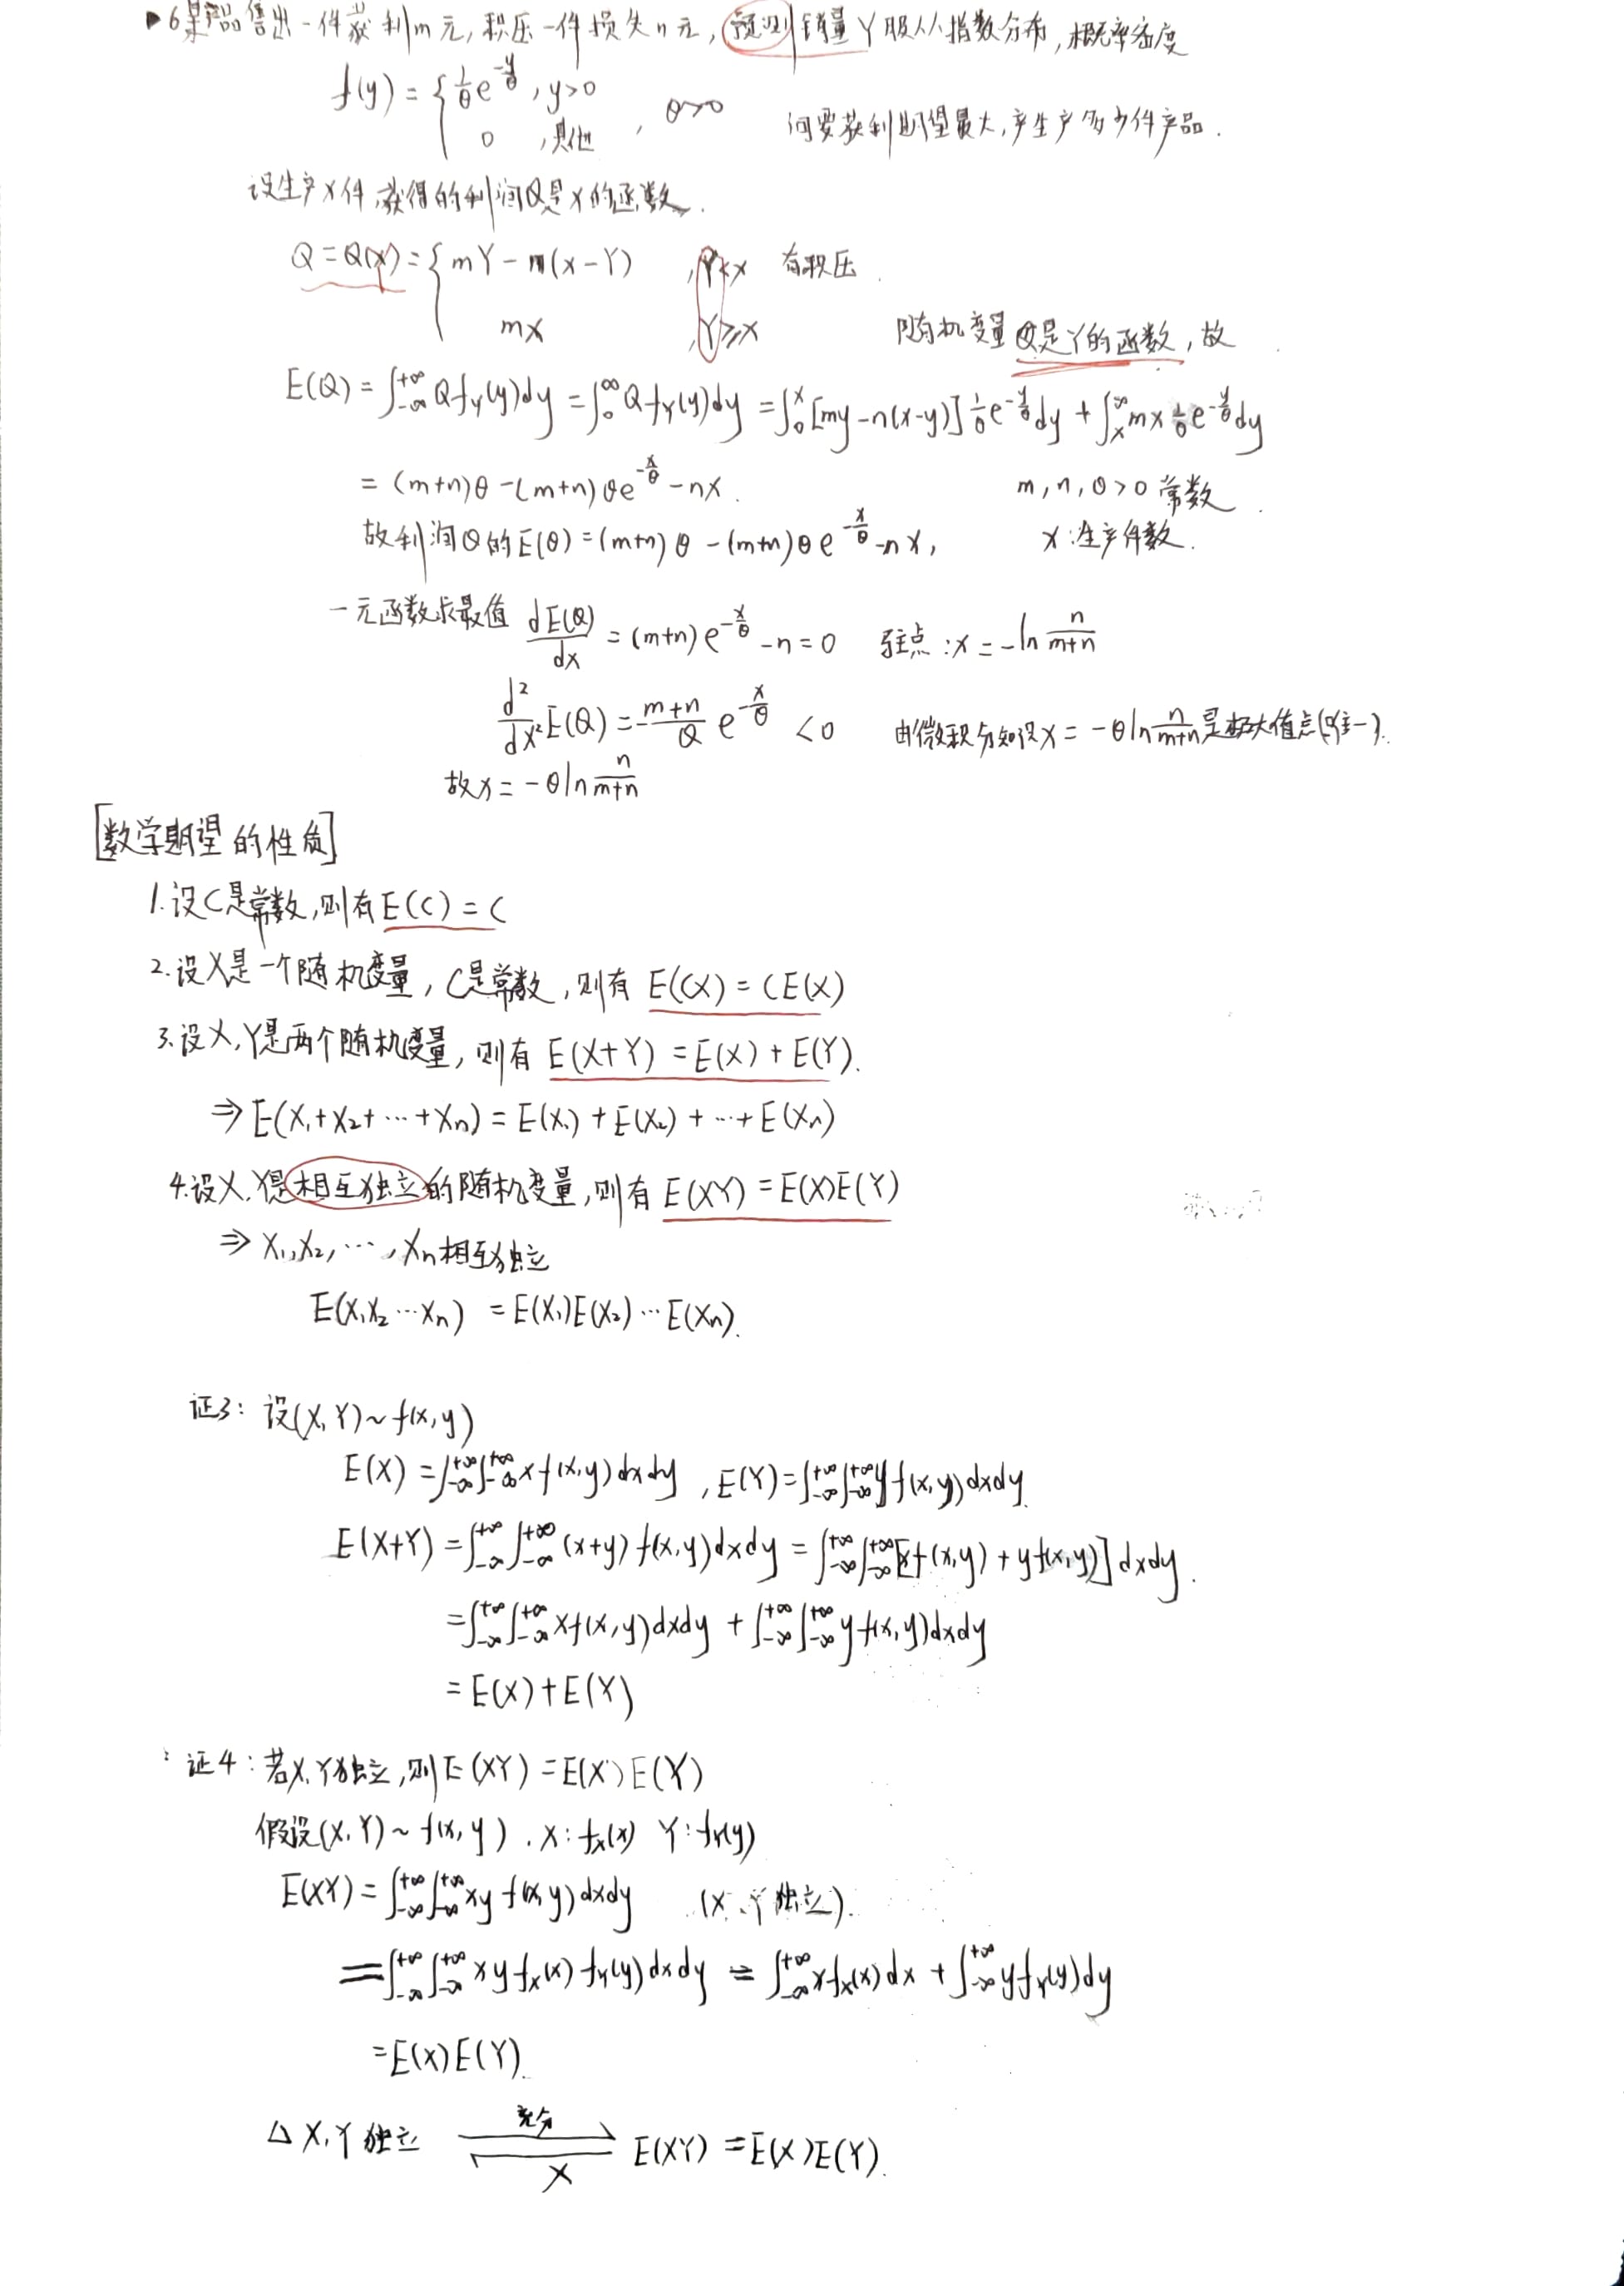 ▶6 某产品售出一件获利m元,积压一件损失n元,预测销量Y服从指数分布,概率密度
f(y) = { 1/θ e^{-y/θ} , y>0
0 ,其他 , θ>0 问要获利期望最大,产生产多少件产品.
设生产x件,获得的利润Q是x的函数.
Q = Q(x) = { mY - n(x-Y) , Y<x 有积压.
mx , Y≥x 随机变量Q是Y的函数,故
E(Q) = ∫_{-∞}^{+∞} Q f_Y(y)dy = ∫_0^∞ Q f_Y(y)dy = ∫_0^x [my-n(x-y)] 1/θ e^{-y/θ} dy + ∫_x^∞ mx 1/θ e^{-y/θ} dy
= (m+n)θ - (m+n)θe^{-x/θ} - nx. m,n,θ>0 常数.
故利润Q的E(Q) = (m+n)θ - (m+n)θe^{-x/θ} - nx, x:生产件数.
一元函数求最值 dE(Q)/dx = (m+n)e^{-x/θ} - n = 0 驻点:x = -ln n/(m+n)
d²/dx² E(Q) = -(m+n)/θ e^{-x/θ} < 0 由微积分知识x = -θln n/(m+n)是极大值点(唯一).
故x = -θln n/(m+n)
[数学期望的性质]
1.设C是常数,则有E(C) = C
2.设X是一个随机变量,C是常数,则有 E(CX) = CE(X)
3.设X,Y是两个随机变量,则有 E(X+Y) = E(X) + E(Y).
⇒ E(X₁+X₂+⋯+Xn) = E(X₁) + E(X₂) + ⋯ + E(Xn)
4.设X,Y是相互独立的随机变量,则有 E(XY) = E(X)E(Y)
⇒ X₁,X₂,⋯,Xn相互独立
E(X₁X₂⋯Xn) = E(X₁)E(X₂)⋯E(Xn).
证3: 设(X,Y)~f(x,y)
E(X) = ∫_{-∞}^{+∞}∫_{-∞}^{+∞} x f(x,y)dxdy , E(Y) = ∫_{-∞}^{+∞}∫_{-∞}^{+∞} y f(x,y)dxdy.
E(X+Y) = ∫_{-∞}^{+∞}∫_{-∞}^{+∞} (x+y) f(x,y)dxdy = ∫_{-∞}^{+∞}∫_{-∞}^{+∞} [xf(x,y) + yf(x,y)] dxdy.
= ∫_{-∞}^{+∞}∫_{-∞}^{+∞} xf(x,y)dxdy + ∫_{-∞}^{+∞}∫_{-∞}^{+∞} yf(x,y)dxdy
= E(X)+E(Y)
证4:若X,Y独立,则E(XY) = E(X)E(Y)
假设(X,Y)~f(x,y). X:f_X(x) Y:f_Y(y)
E(XY) = ∫_{-∞}^{+∞}∫_{-∞}^{+∞} xy f(x,y)dxdy (X、Y独立).
= ∫_{-∞}^{+∞}∫_{-∞}^{+∞} xy f_X(x) f_Y(y)dxdy = ∫_{-∞}^{+∞} xf_X(x)dx + ∫_{-∞}^{+∞} yf_Y(y)dy
= E(X)E(Y).
△ X,Y独立 充分 ⇌ X E(XY) = E(X)E(Y).